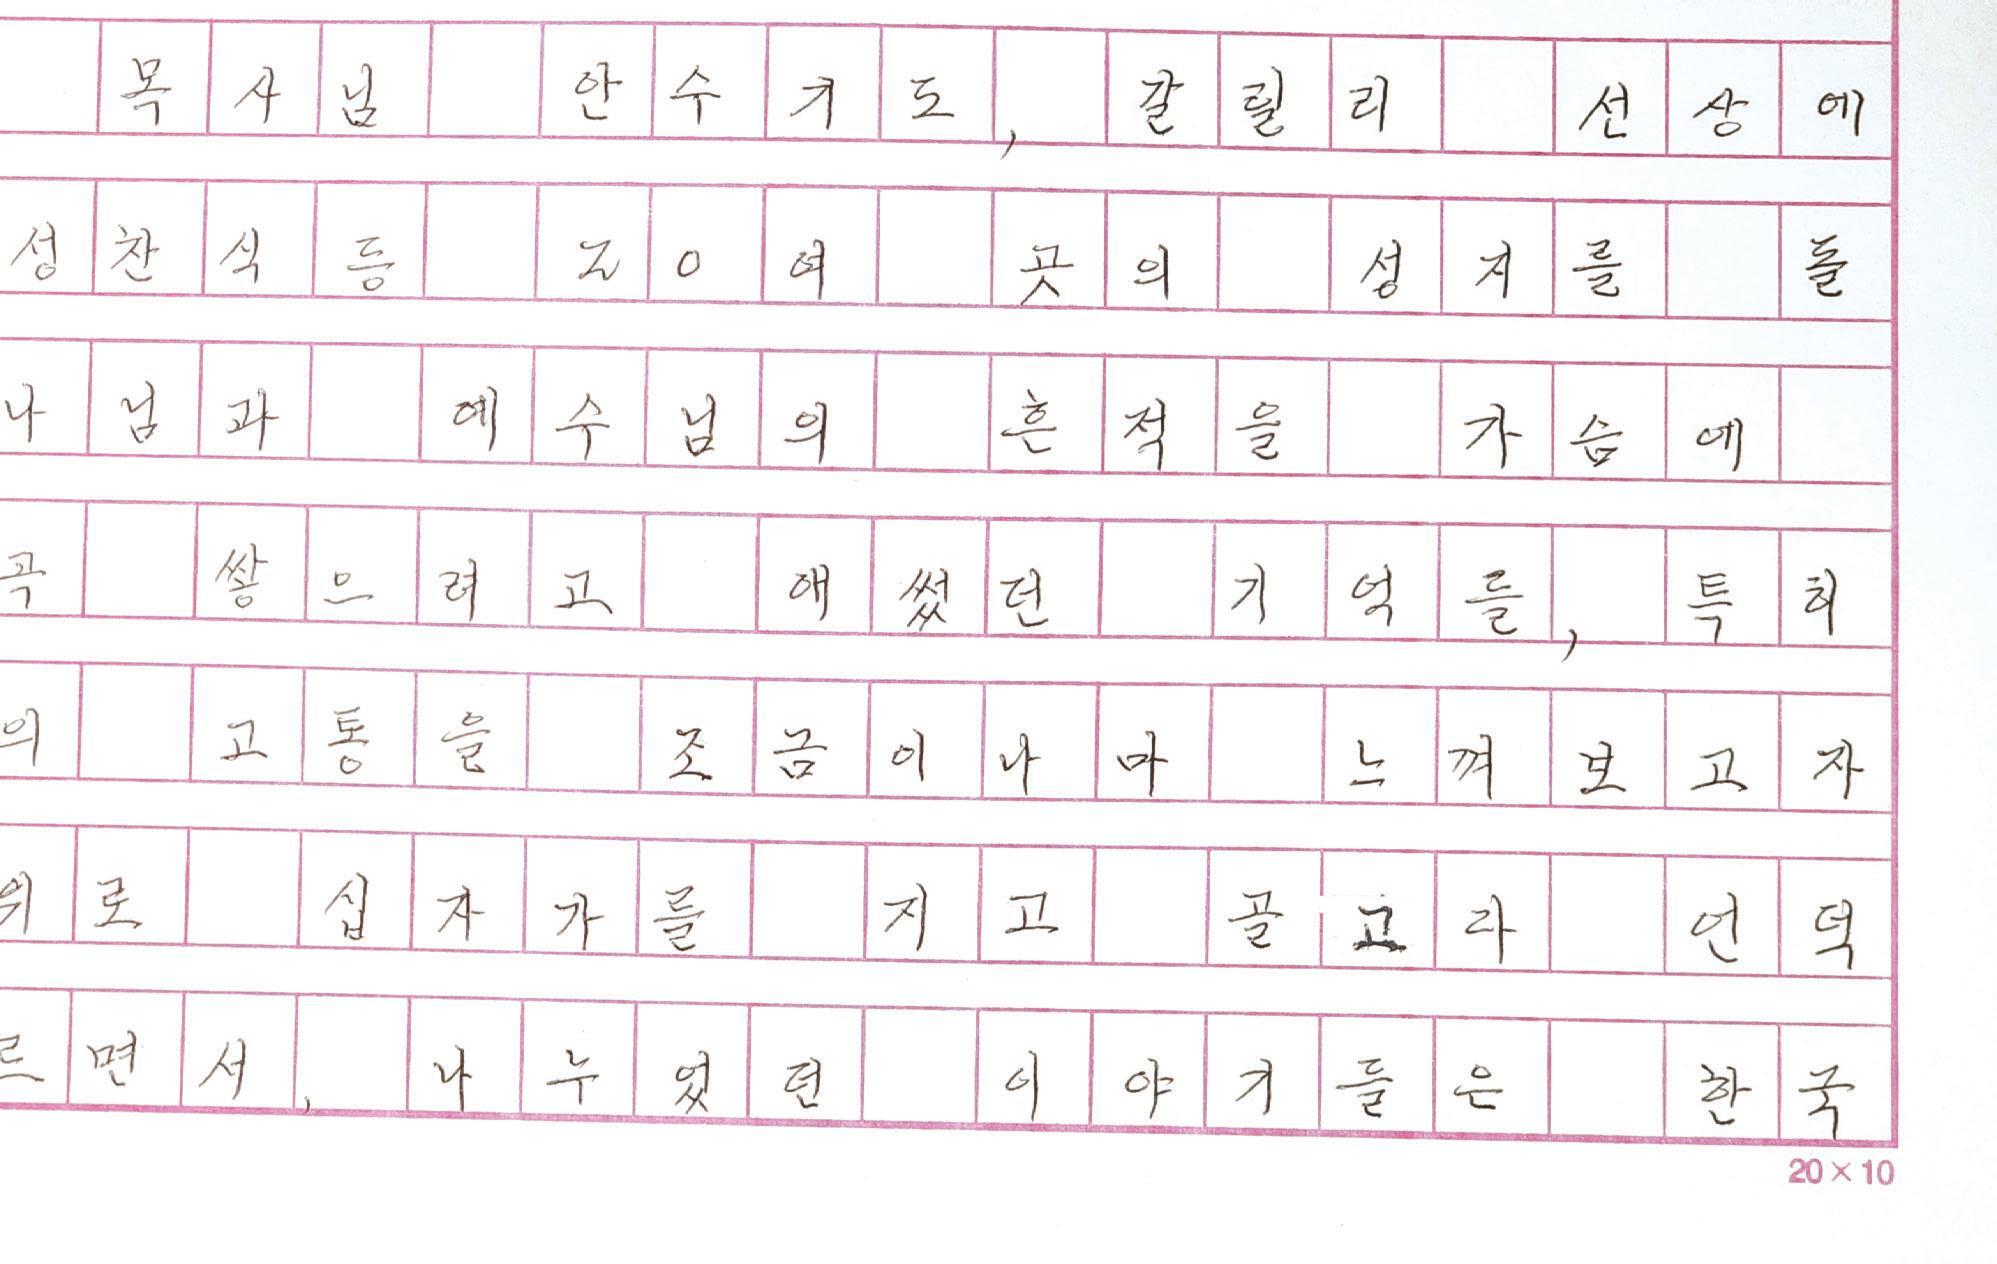 목사님 안수기도, 갈릴리 선상에
성찬식등 20여 곳의 성지를 돌
나님과 예수님의 흔적을 가슴에
곡 쌓으려고 애썼던 기억을, 특히
의 고통을 조금이나마 느껴보고자
위로 십자가를 지고 골고라 언덕
르면서, 나누었던 이야기들은 한국
20×10